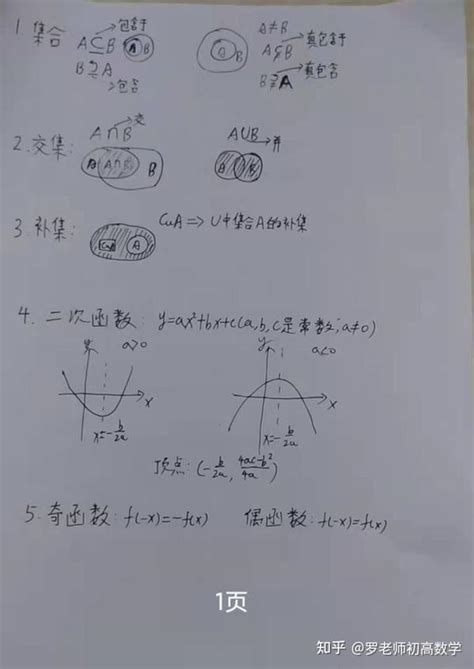 1 集合 A⊆B 包含于 A B A≠B
A B A⫋B 真包含于
B⊇A 包含 B⫌A 真包含
2.交集: A∩B 交 A∪B 并
A A∩B B
3.补集: CuA A CuA => U中集合A的补集
4. 二次函数: y=ax²+bx+c(a,b,c是常数,a≠0)
y a>0 y a<0
x x
x=-b/2a x=-b/2a
顶点: (-b/2a, 4ac-b²/4a)
5.奇函数: f(-x)=-f(x) 偶函数: f(-x)=f(x)
1页
知乎 @罗老师初高数学